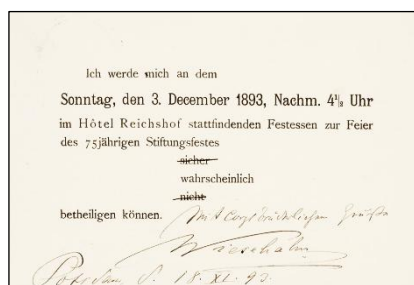 Ich werde mich an dem
Sonntag, den 3. December 1893, Nachm. 4½ Uhr
im Hôtel Reichshof stattfindenden Festessen zur Feier
des 75jährigen Stiftungsfestes
sicher
wahrscheinlich
nicht
betheiligen können. Mit corpsbrüderlichem Gruße
Potsdam d. 18. XI. 93.